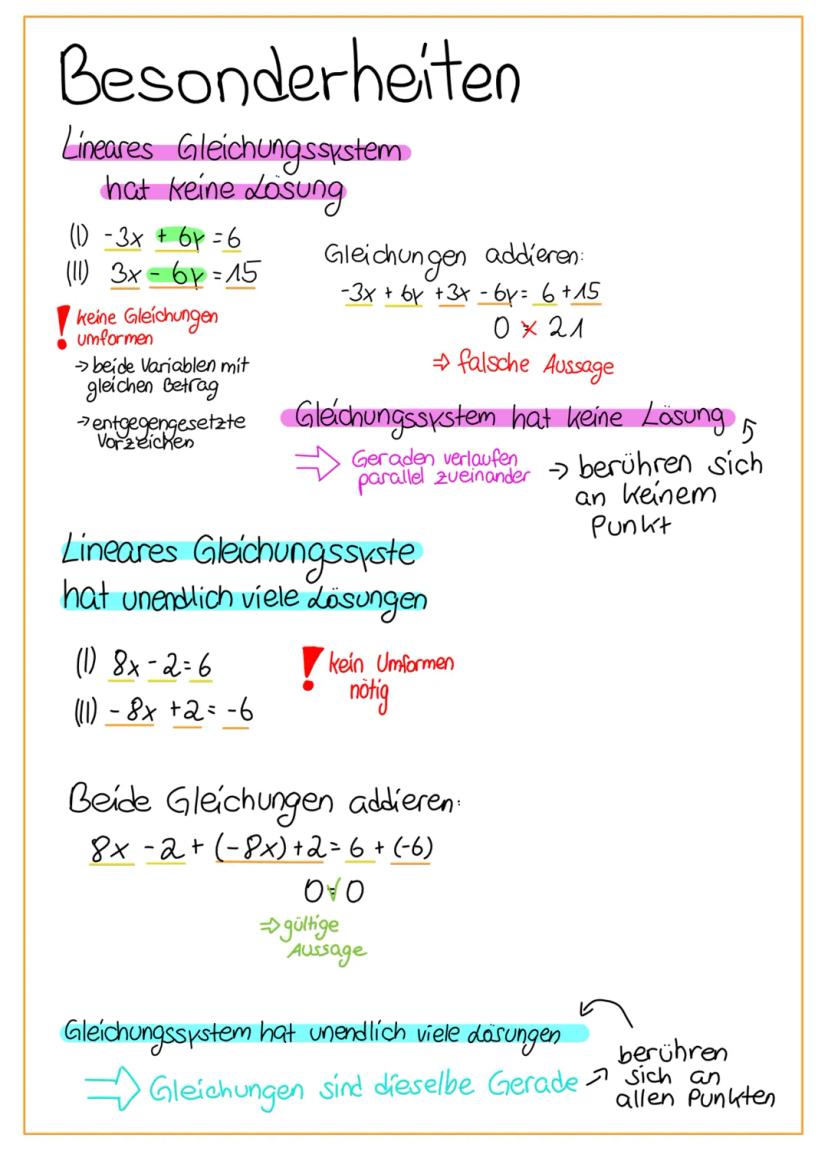 Besonderheiten
Lineares Gleichungssystem
hat keine Lösung
(I) -3x + 6y = 6
(II) 3x - 6y = 15
! keine Gleichungen
umformen
→ beide Variablen mit
gleichen Betrag
→ entgegengesetzte
Vorzeichen
Gleichungen addieren:
-3x + 6y + 3x - 6y = 6 + 15
0 ≠ 21
⇒ falsche Aussage
Gleichungssystem hat keine Lösung
⇒ Geraden verlaufen
parallel zueinander
→ berühren sich
an keinem
Punkt
Lineares Gleichungssyste
hat unendlich viele Lösungen
(I) 8x - 2 = 6
(II) - 8x + 2 = -6
! kein Umformen
nötig
Beide Gleichungen addieren:
8x - 2 + (-8x) + 2 = 6 + (-6)
0 = 0
⇒ gültige
Aussage
Gleichungssystem hat unendlich viele Lösungen
⇒ Gleichungen sind dieselbe Gerade
→ berühren
sich an
allen Punkten